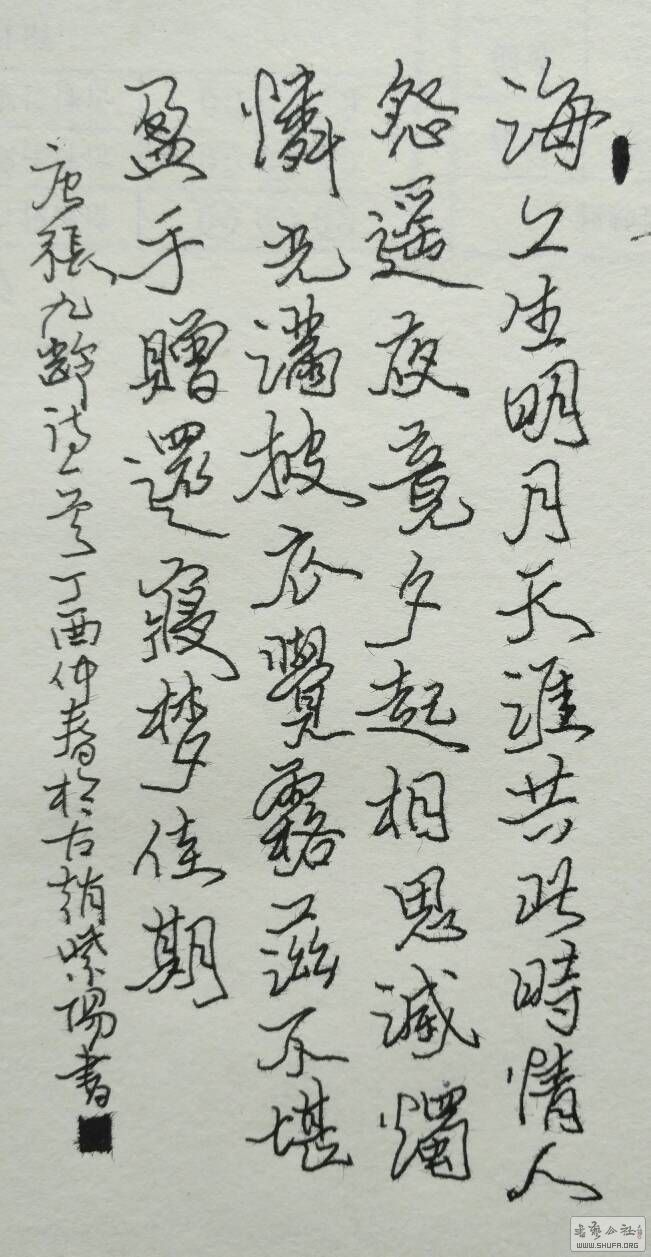 海上生明月天涯共此時情人
怨遥夜竟夕起相思滅燭
憐光滿披衣覺露滋不堪
盈手贈還寢梦佳期
唐張九齡詩一首丁酉仲春於古趙紫陽書
书艺公社
WWW.SHUFA.ORG